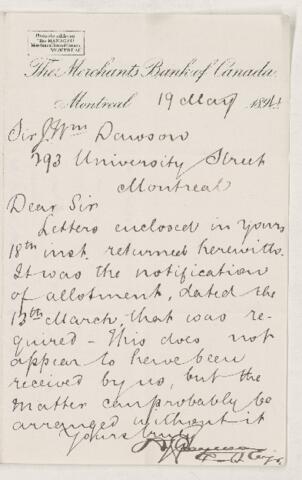 The Merchants Bank of Canada.
Montreal 19 May 1894
Sir J. Wm Dawson
293 University Street
Montreal
Dear Sir
Letters enclosed in yours
18th inst. returned herewith.
It was the notification
of allotment, dated the
13th March, that was re-
quired - This does not
appear to have been
received by us, but the
matter can probably be
arranged without it
Yours truly